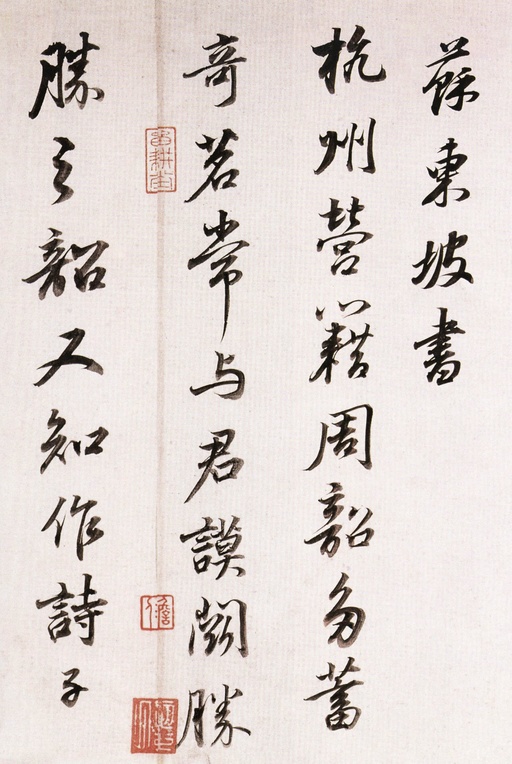 蘇東坡書
杭州營籍周韶多蓄
奇茗常与君謨鬭勝
勝之韶又知作詩子